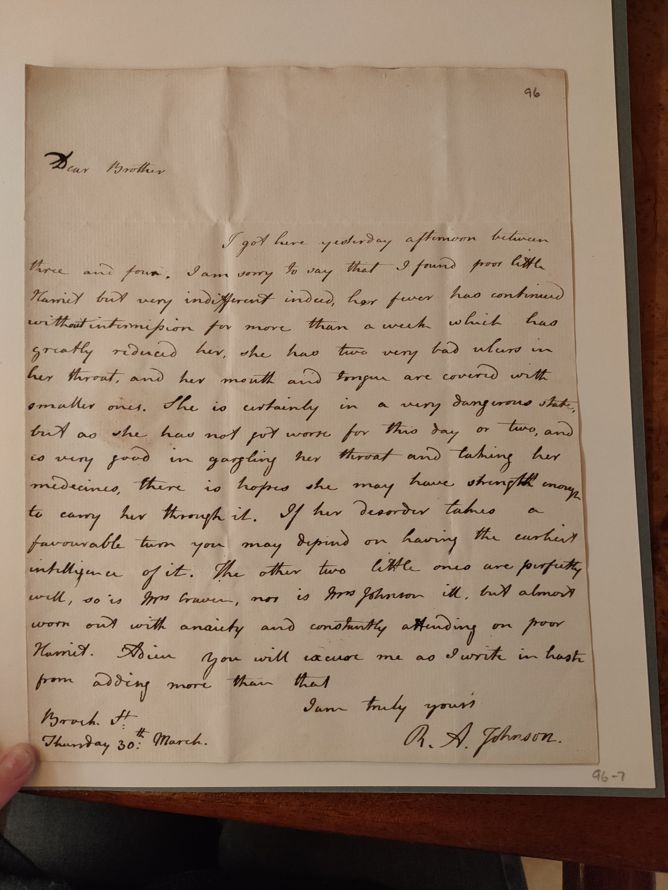 96
Dear Brother
I got here yesterday afternoon between
three and four. I am sorry to say that I found poor little
Harriet but very indifferent indeed, her fever has continued
without intermission for more than a week which has
greatly reduced her, she has two very bad ulcurs in
her throat, and her mouth and tongue are covered with
smaller ones. She is certainly in a very dangerous state,
but as she has not got worse for this day or two, and
is very good in gargling her throat and taking her
medecines, there is hopes she may have strength enough
to carry her through it. If her desorder takes a
favourable turn you may depend on having the earliest
intelligence of it. The other two little ones are perfectly
well, so is Mrs Craven, nor is Mrs Johnson ill, but almost
worn out with anxiety and constantly attending on poor
Harriet. Adieu you will excuse me as I write in haste
from adding more than that
I am truly yours
Brook St:
Thursday 30:th March.
R. A. Johnson.
96-7